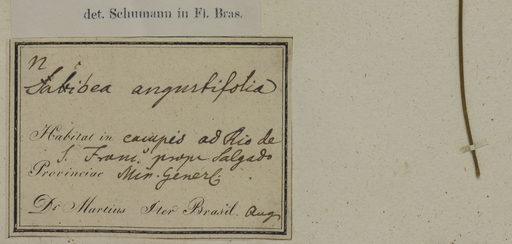 det. Schumann in Fl. Bras.
n
Sabicea angustifolia
Habitat in campis ad Rio de
S. Franc. prope Salgado
Provinciae Min. Gener.
Dr Martius Iter Brasil. Aug.